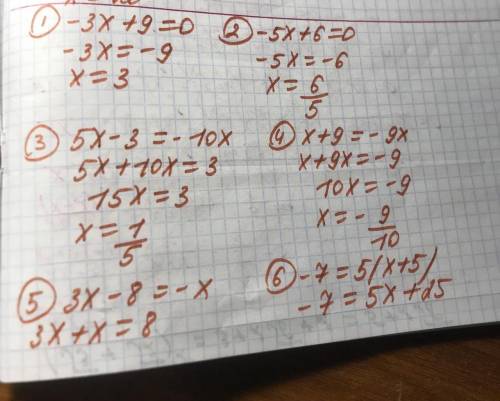 ① -3x+9=0
-3x=-9
x=3
② -5x+6=0
-5x=-6
x=6/5
③ 5x-3=-10x
5x+10x=3
15x=3
x=1/5
④ x+9=-9x
x+9x=-9
10x=-9
x=-9/10
⑤ 3x-8=-x
3x+x=8
⑥ -7=5(x+5)
-7=5x+25